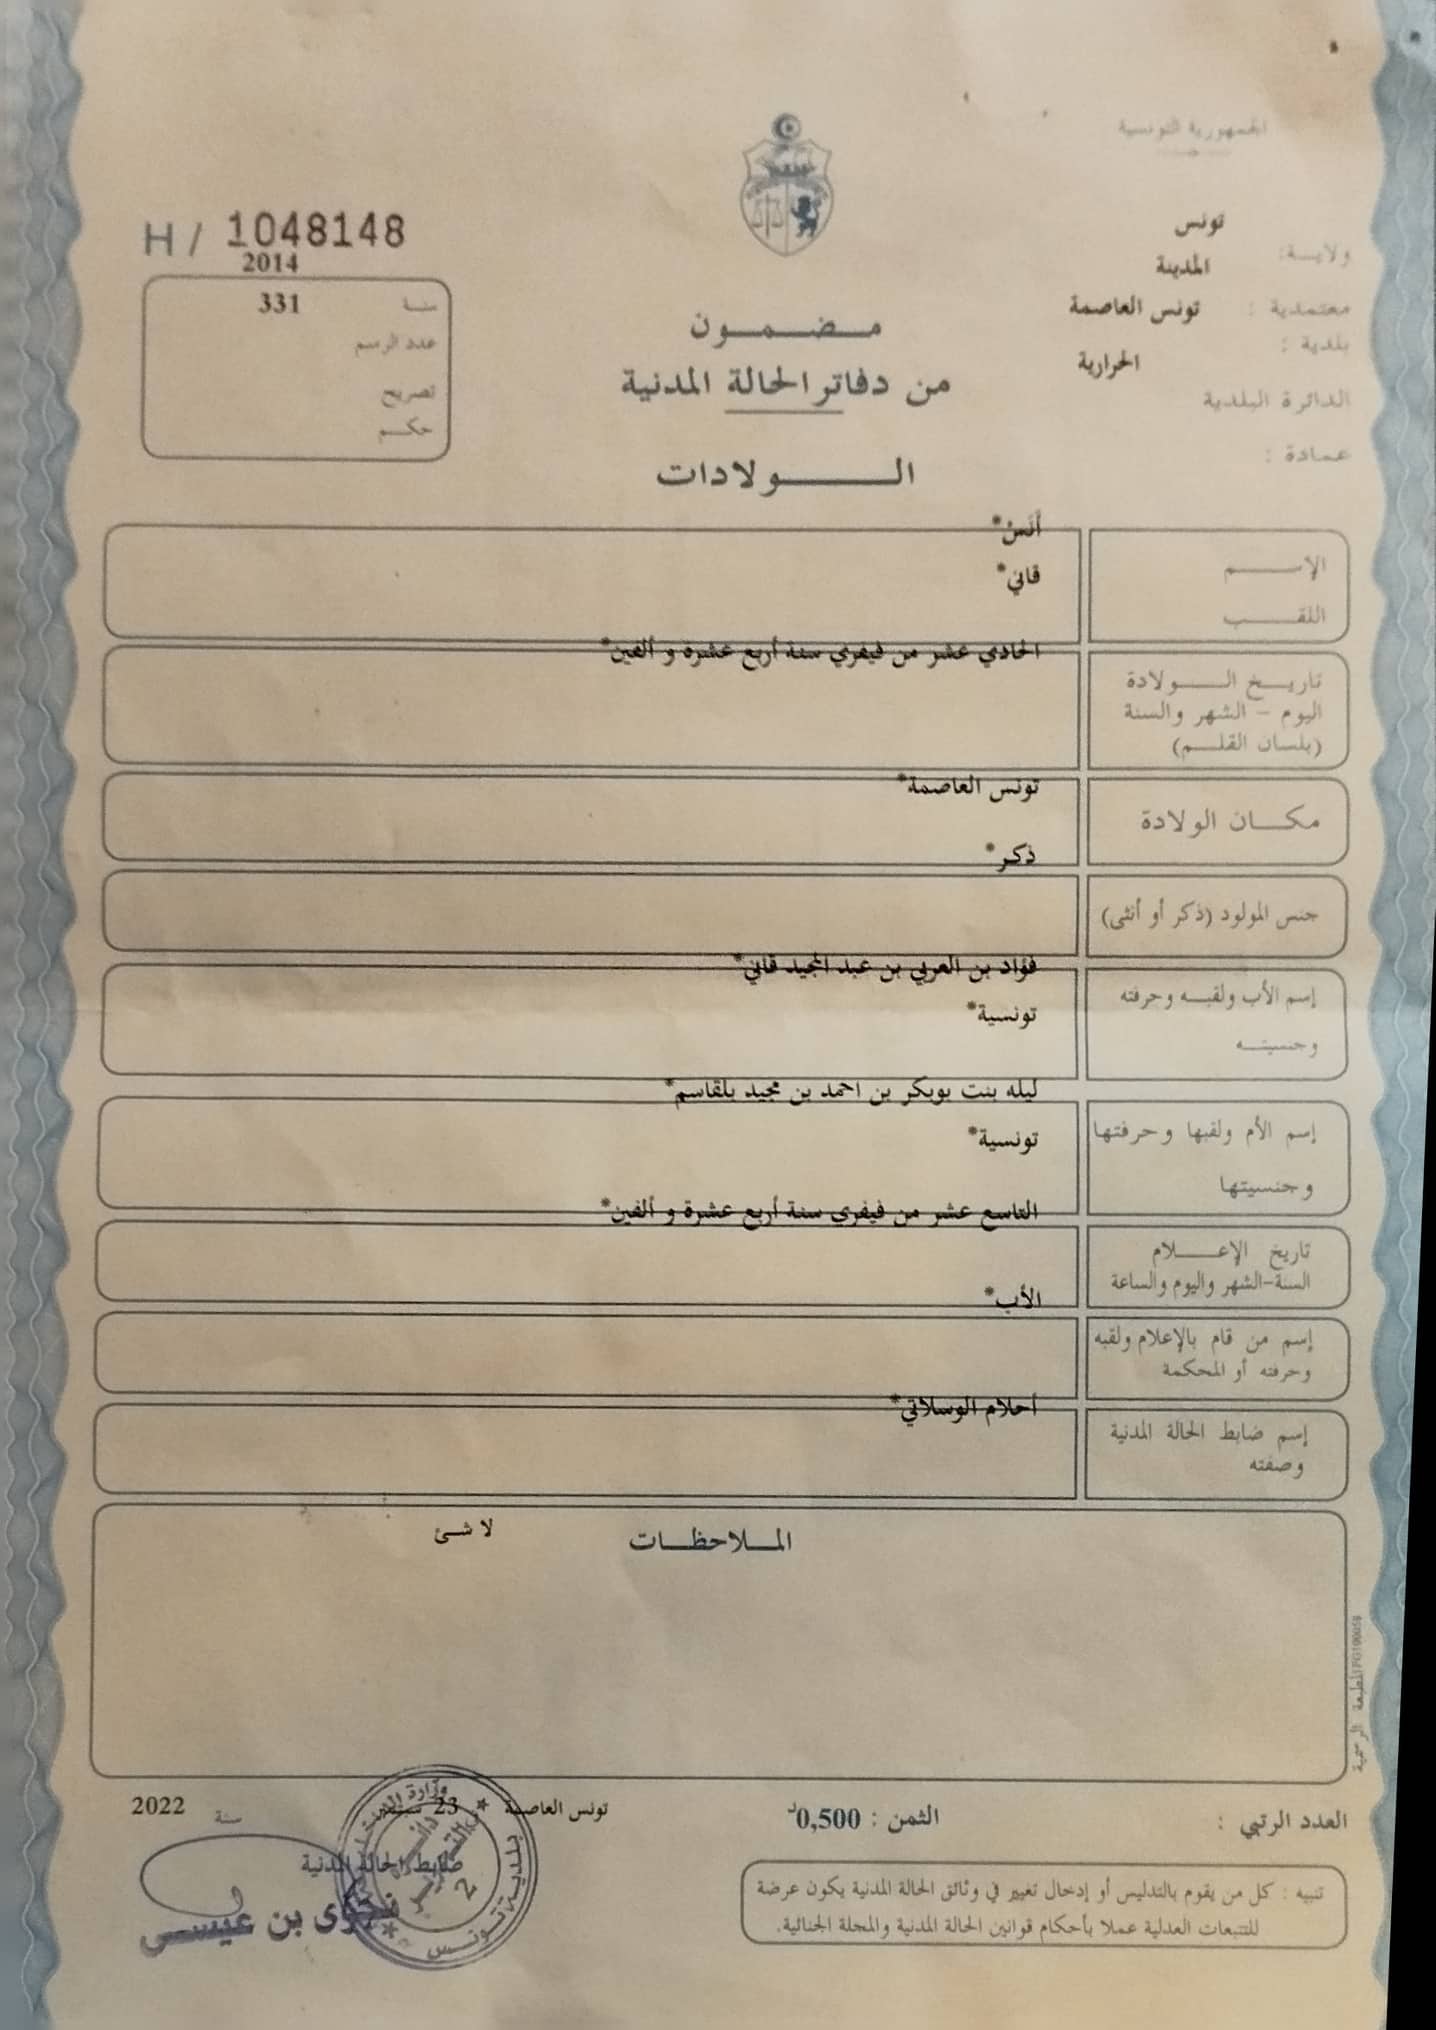 الجمهورية التونسية
H / 1048148
تونس
ولايـة:
2014
المدينة
سنة
331
معتمدية :
تونس العاصمة
مـضـمـون
عدد الرسم
بلدية :
الحرارية
من دفاتر الحالة المدنية
تصريح
الدائرة البلدية
حكـم
عمادة :
الـولادات
أنس*
الإسـم
قاني*
اللقـب
الحادي عشر من فيفري سنة أربع عشرة و ألفين*
تاريـخ الـولادة
اليوم - الشهر والسنة
(بلسان القلـم)
تونس العاصمة*
مكـان الولادة
ذكر*
جنس المولود (ذكر أو أنثى)
فؤاد بن العربي بن عبد المجيد قاني*
إسم الأب ولقبـه وحرفته
تونسية*
وجنسيتـه
ليله بنت بوبكر بن احمد بن مجيد بلقاسم*
إسم الأم ولقبها وحرفتها
تونسية*
وجنسيتها
التاسع عشر من فيفري سنة أربع عشرة و ألفين*
تاريخ الإعـلام
السنة-الشهر واليوم والساعة
الأب*
إسم من قام بالإعلام ولقبه
وحرفته أو المحكمة
أحلام الوسلاتي*
إسم ضابط الحالة المدنية
وصفته
المـلاحظـات
لا شئ
المطبعة الرسمية
العدد الرتبي :
الثمن : 0,500د
تونس العاصمة
23
سنة
2022
ضابط الحالة المدنية
نجوى بن عيسـى
بلدية تونس
2
تنبيه : كل من يقوم بالتدليس أو إدخال تغيير في وثائق الحالة المدنية يكون عرضة
للتتبعات العدلية عملا بأحكام قوانين الحالة المدنية والمجلة الجنائية.